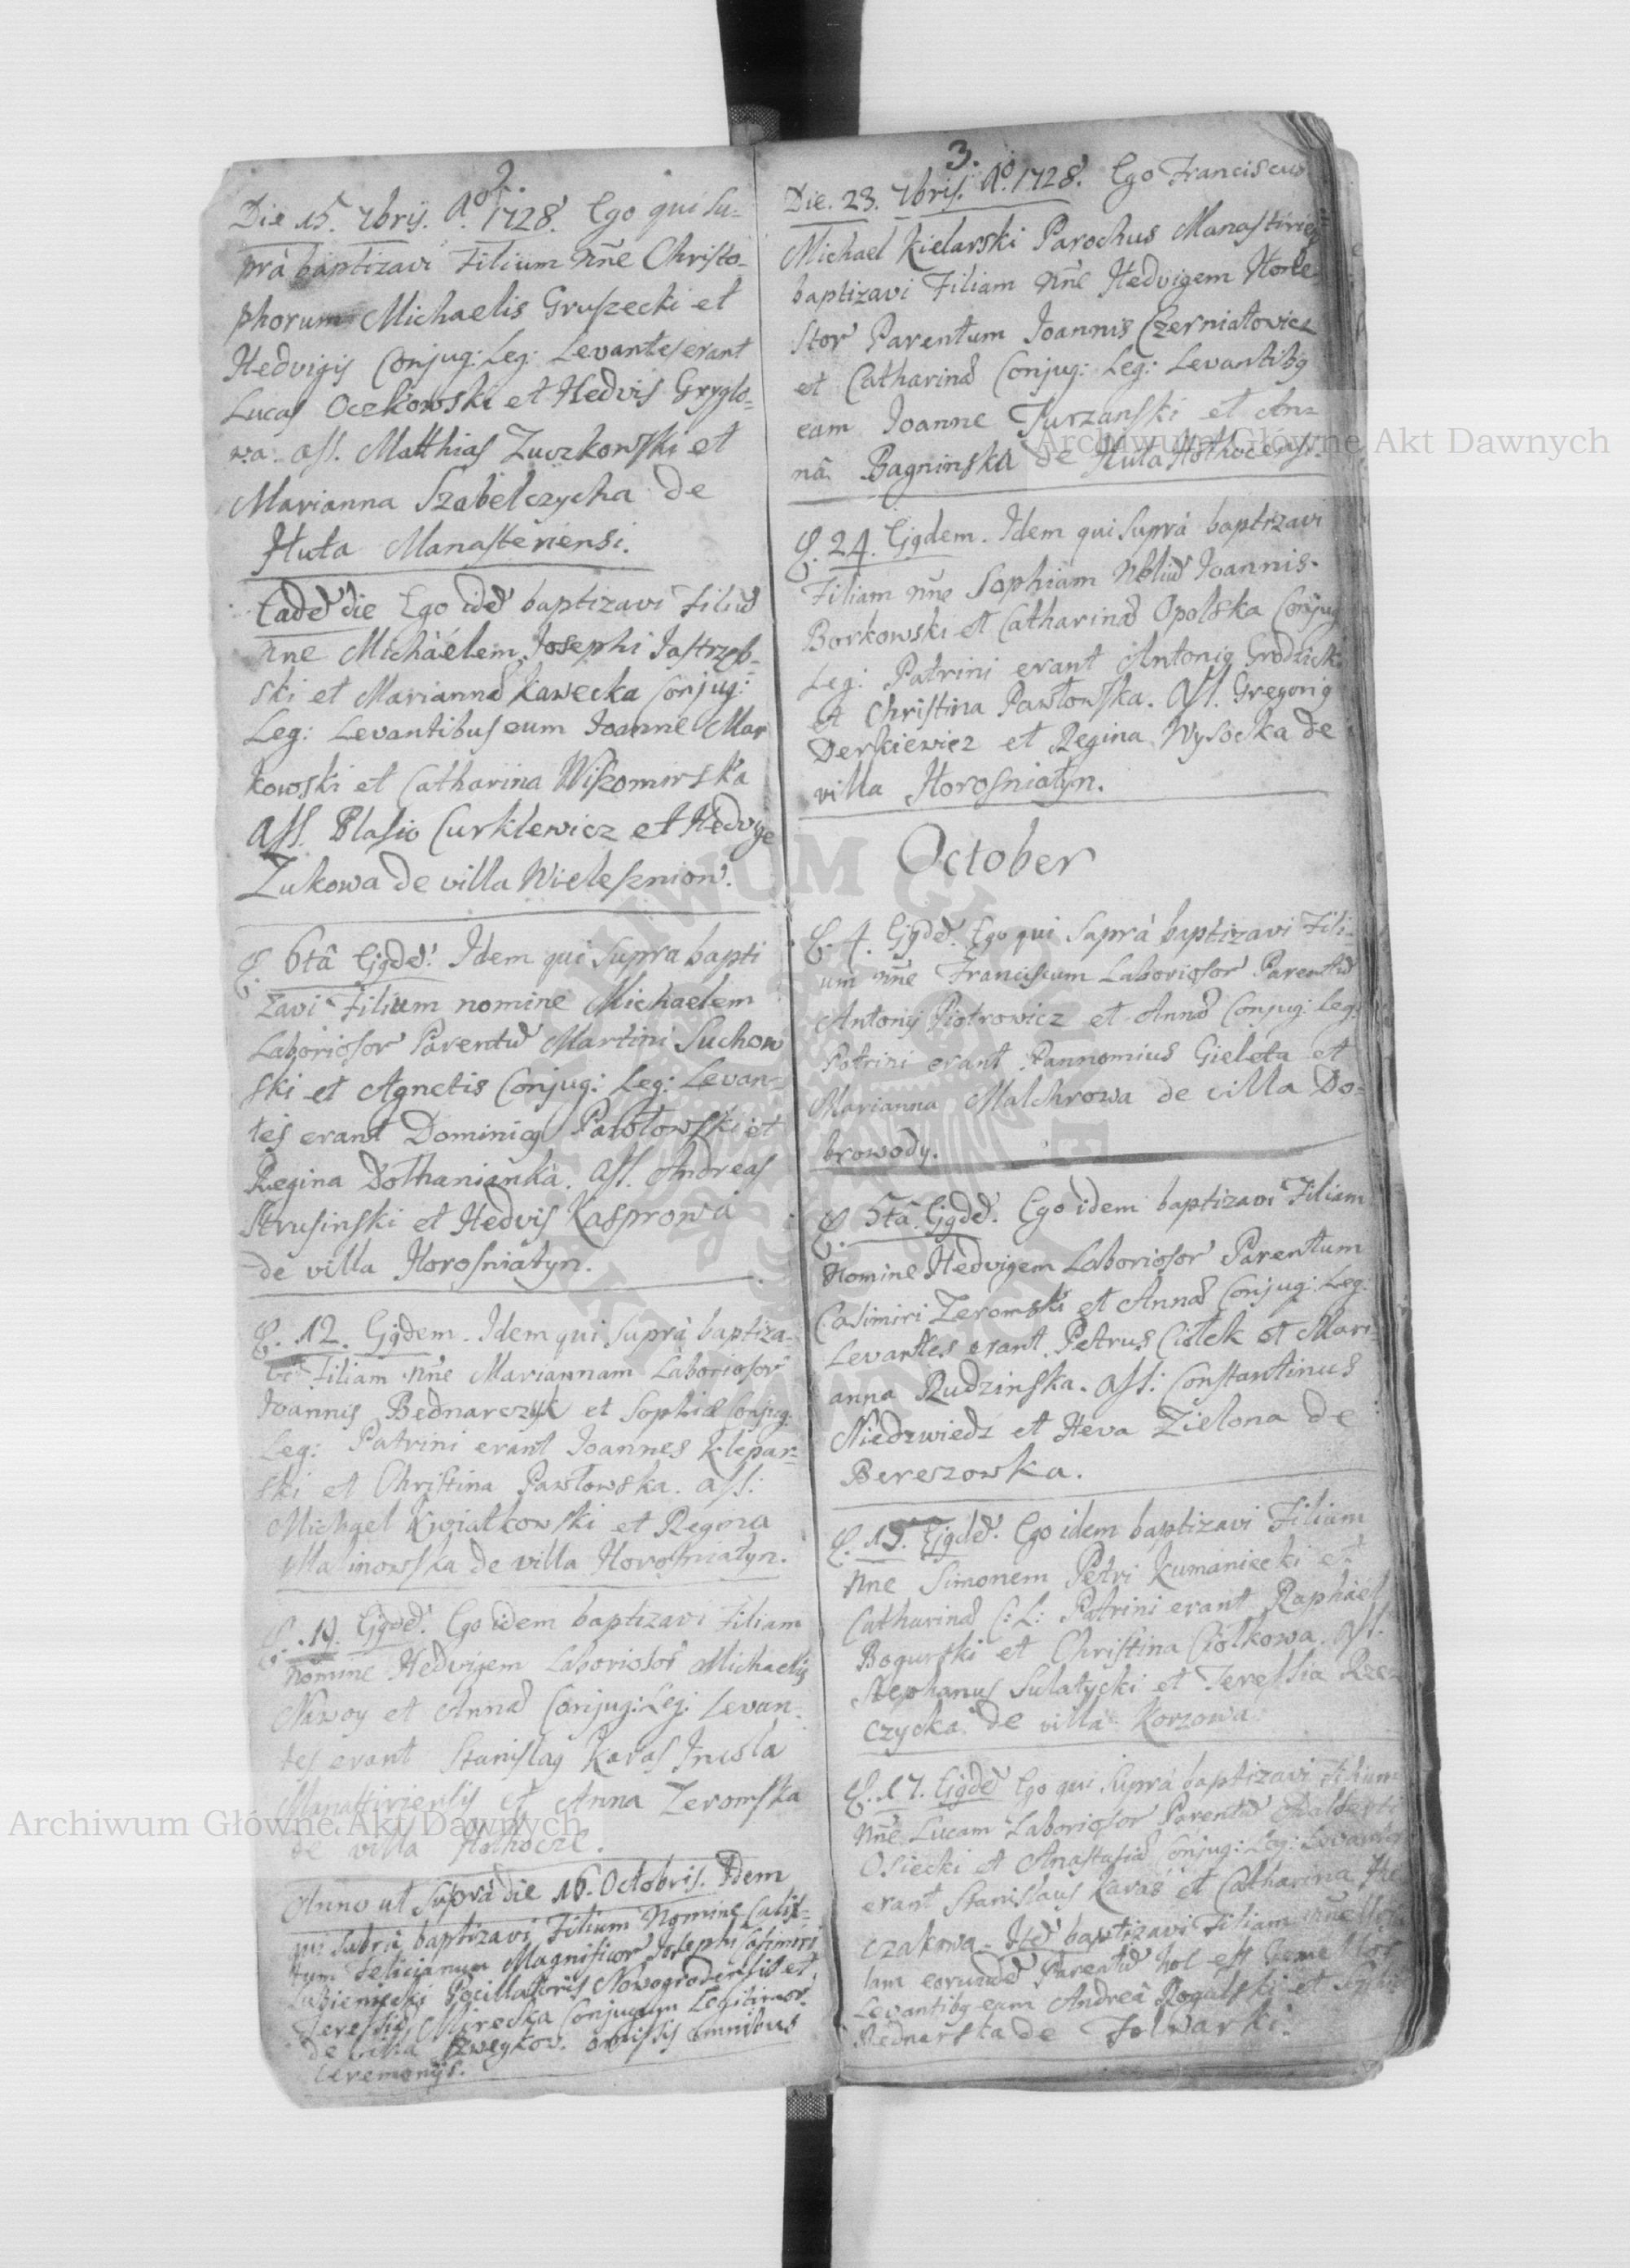 2.
Die 15. 7bris. Aº. 1728. Ego qui su-
prà baptizavi Filium nñe Christo-
phorum Michaelis Gruszecki et
Hedvigis Conjug: Leg: Levantes erant
Lucas Oczkowski et Hedvis Gryglo-
wa. ass. Matthias Zuczkowski et
Marianna Szabelczycha de
Huta Manasteriensi.
Eadẽ die Ego idẽ baptizavi Filiũ
nñe Michàélem Josephi Jastrzęb-
ski et Mariannæ Kawecka Conjug:
Leg: Levantibus eum Joanne Mar
kowski et Catharina Wiszomirska
Ass. Blasio Curklewicz et Hedvige
Zukowa de villa Wielesznion.
D. 6tâ Ejgdẽ. Idem qui supra bapti
zavi Filium nomine Michaelem
Laboriosor Parentũ Martini Suchow
ski et Agnetis Conjug: Leg: Levan-
tes erant Dominicg Pawłowski et
Regina Dołhanianka. Ass. Andreas
Strusinski et Hedvis Kasprowa
de villa Horosniatyn.
D. 12. Ejgdem. Idem qui suprà baptiza-
vi Filiam nñe Mariannam Laboriosor
Joannis Bednarczyk et Sophiæ Conjug:
Leg: Patrini erant Joannes Klepar-
ski et Christina Pawłowska. ass:
Michael Kwiatkowski et Regina
Malinowska de villa Horosniatyn.
D. 19. Ejgdẽ. Ego idem baptizavi Filiam
nomine Hedvigem Laboriosor Michaelis
Nawoy et Annæ Conjug: Leg: Levan-
tes erant Stanislag Karas Incola
Manastiriensis et Anna Zeromska
de villa Hołhocze.
Anno ut suprà die 16. Octobris. Idem
qui suprà baptizavi Filium Nomine Calix-
tum Felicianum Magnificor Josephi Casimiri
Pocillatoris Nowogrodensis et
Teressiæ Mirecka Conjugum Legitimor.
de villa omissis omnibus
Ceremonijs.
3.
Die. 23. 7bris. Aº. 1728. Ego Franciscus
Michael Kielarski Parochus Manastirien
baptizavi Filiam nñe Hedvigem Hone
stor Parentum Joannis Czerniatowicz
et Catharinæ Conjug: Leg: Levantibg
eam Joanne Turzanski et An-
nâ Bagninska de Huta Hołhocens.
D. 24. Ejgdem. Idem qui suprà baptizavi
Filiam nñe Sophiam Nbliũ Joannis
Borkowski et Catharinæ Opolska Conjug
Leg: Patrini erant Antonig Grodzicki
et Christina Pawłowska. Ass. Gregorig
Derkiewicz et Regina Wysocka de
villa Horosniatyn.
October
D. 4. Ejgdẽ. Ego qui suprà baptizavi Fili-
um nñe Franciscum Laboriosor Parentũ
Antonij Piotrowicz et Annæ Conjug: leg:
Patrini erant Pannomius Gieleta et
Marianna Malchrowa de villa Do-
browody.
D. 5tâ. Ejgdẽ. Ego idem baptizavi Filiam
Nomine Hedvigem Laboriosor Parentum
Casimiri Zeromski et Annæ Conjug: Leg.
Levantes erant. Petrus Ciołek et Mari-
anna Rudzinska. Ass: Constantinus
Niedzwiedź et Heva Zielona de
Berezowka.
D. 15. Ejgdẽ. Ego idem baptizavi Filiam
nñe Simonem Petri Kumaniecki et
Catharinæ C: L: Patrini erant Raphàel
Bogurski et Christina Ciołkowa. Ass.
Stephanus Sulatycki et Teressia Rze-
czycka de villa Korzowa.
D. 17. Ejgdẽ Ego qui suprà baptizavi Filium
nñe Lucam Laboriosor Parentũ Adalberti
Osiecki et Anastasiæ Conjug: Leg: Levantes
erant Stanislaus Karaś et Catharina
czakowa. Itẽ baptizavi Filiam nñe
lam eorundẽ Parentũ hoc est
Levantibg eam Andreâ Rogalski et
Bednarska de Folwarki.
Archiwum Główne Akt Dawnych
Archiwum Główne Akt Dawnych
ARCHIWUM GŁÓWNE AKT DAWNYCH